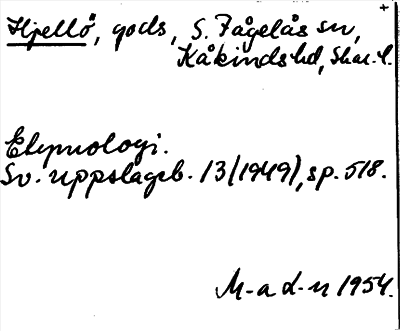 Hjellö, gods, S. Fågelås sn,
Kåkinds hd, Skar. l.
Etymologi.
Sv. uppslagsb. 13 (1949), sp. 518.
M-a d-n 1954.